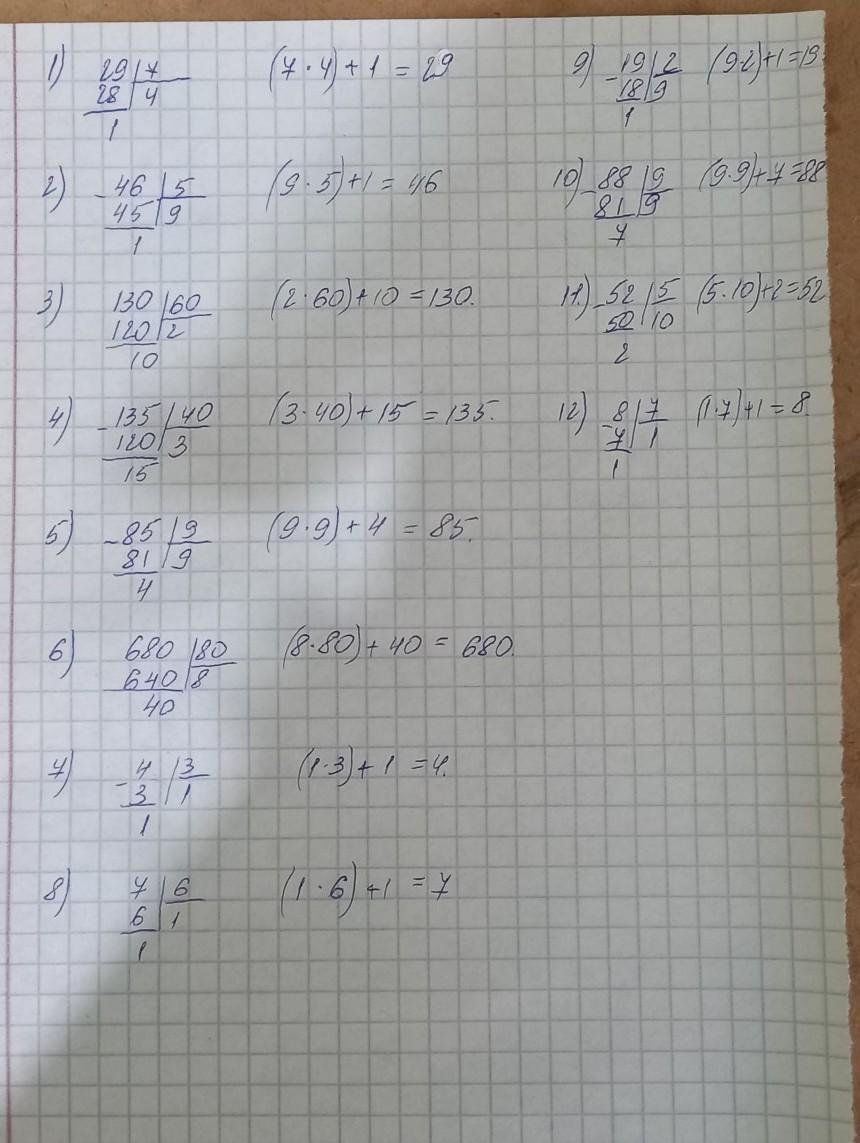 1) 29 7 (7·4)+1 = 29
28 4
1
2) -46 5 (9·5)+1 = 46
45 9
1
3) 130 60 (2·60)+10 = 130.
120 2
10
4) -135 40 (3·40)+15 = 135.
120 3
15
5) -85 9 (9·9)+4 = 85.
81 9
4
6) 680 80 (8·80)+40 = 680.
640 8
40
7) -4 3 (1·3)+1 = 4.
3 1
1
8) 7 6 (1·6)+1 = 7
6 1
1
9) -19 2 (9·2)+1=19
18 9
1
10) -88 9 (9·9)+7=88
81 9
7
11.) -52 5 (5·10)+2=52
50 10
2
12) -8 7 (1·7)+1=8.
7 1
1